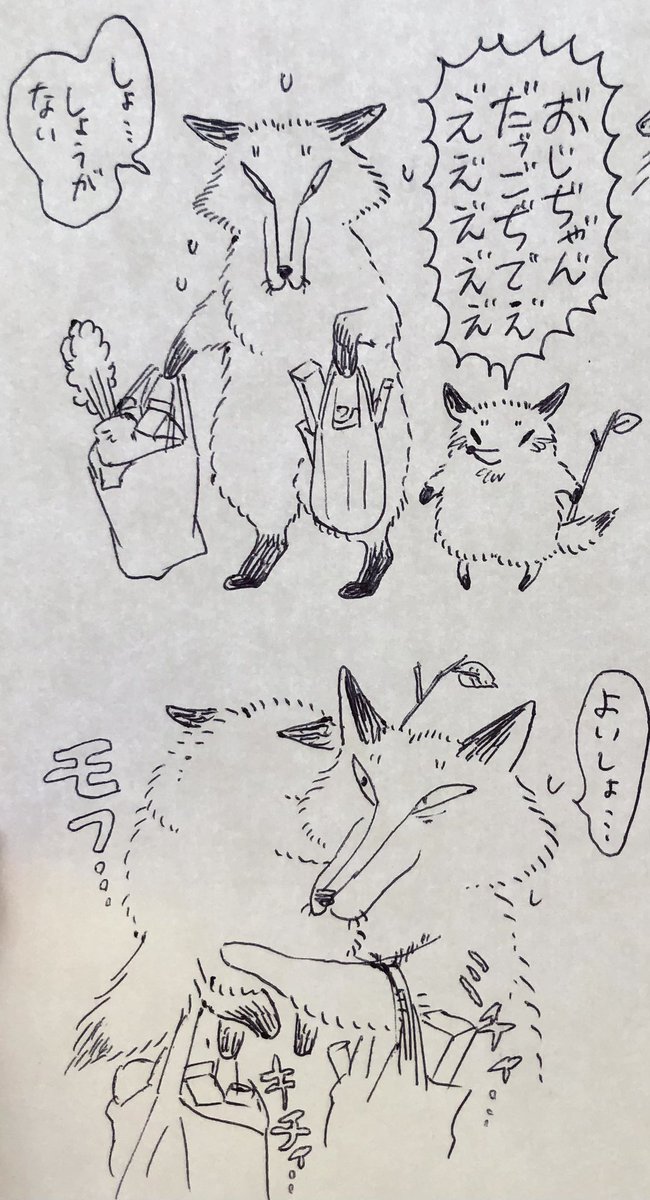 おじぢゃん
だっ゛ごぢでえ゛
え゛え゛え゛え゛え゛
しょ…
しょうが
ない
よいしょ…
モフ…
ミチィ…
キチィ…